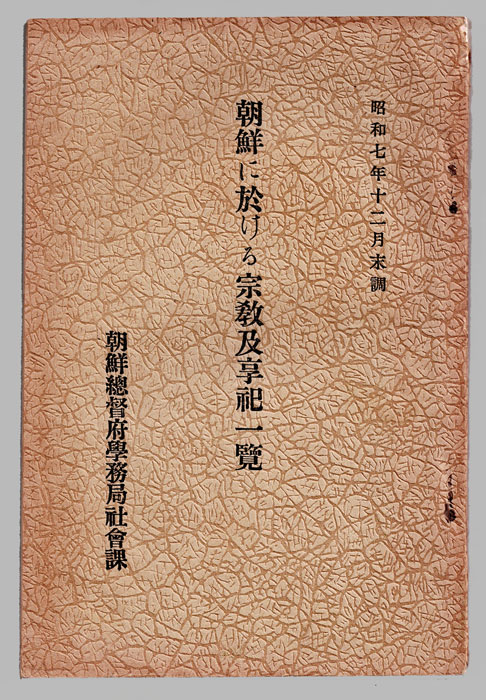 昭和七年十二月末調
朝鮮に於ける宗敎及享祀一覽
朝鮮總督府學務局社會課